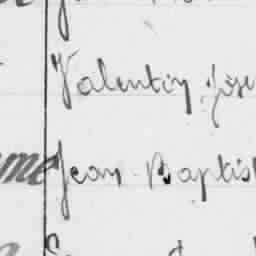 Valentin Jose
me Jean Baptis